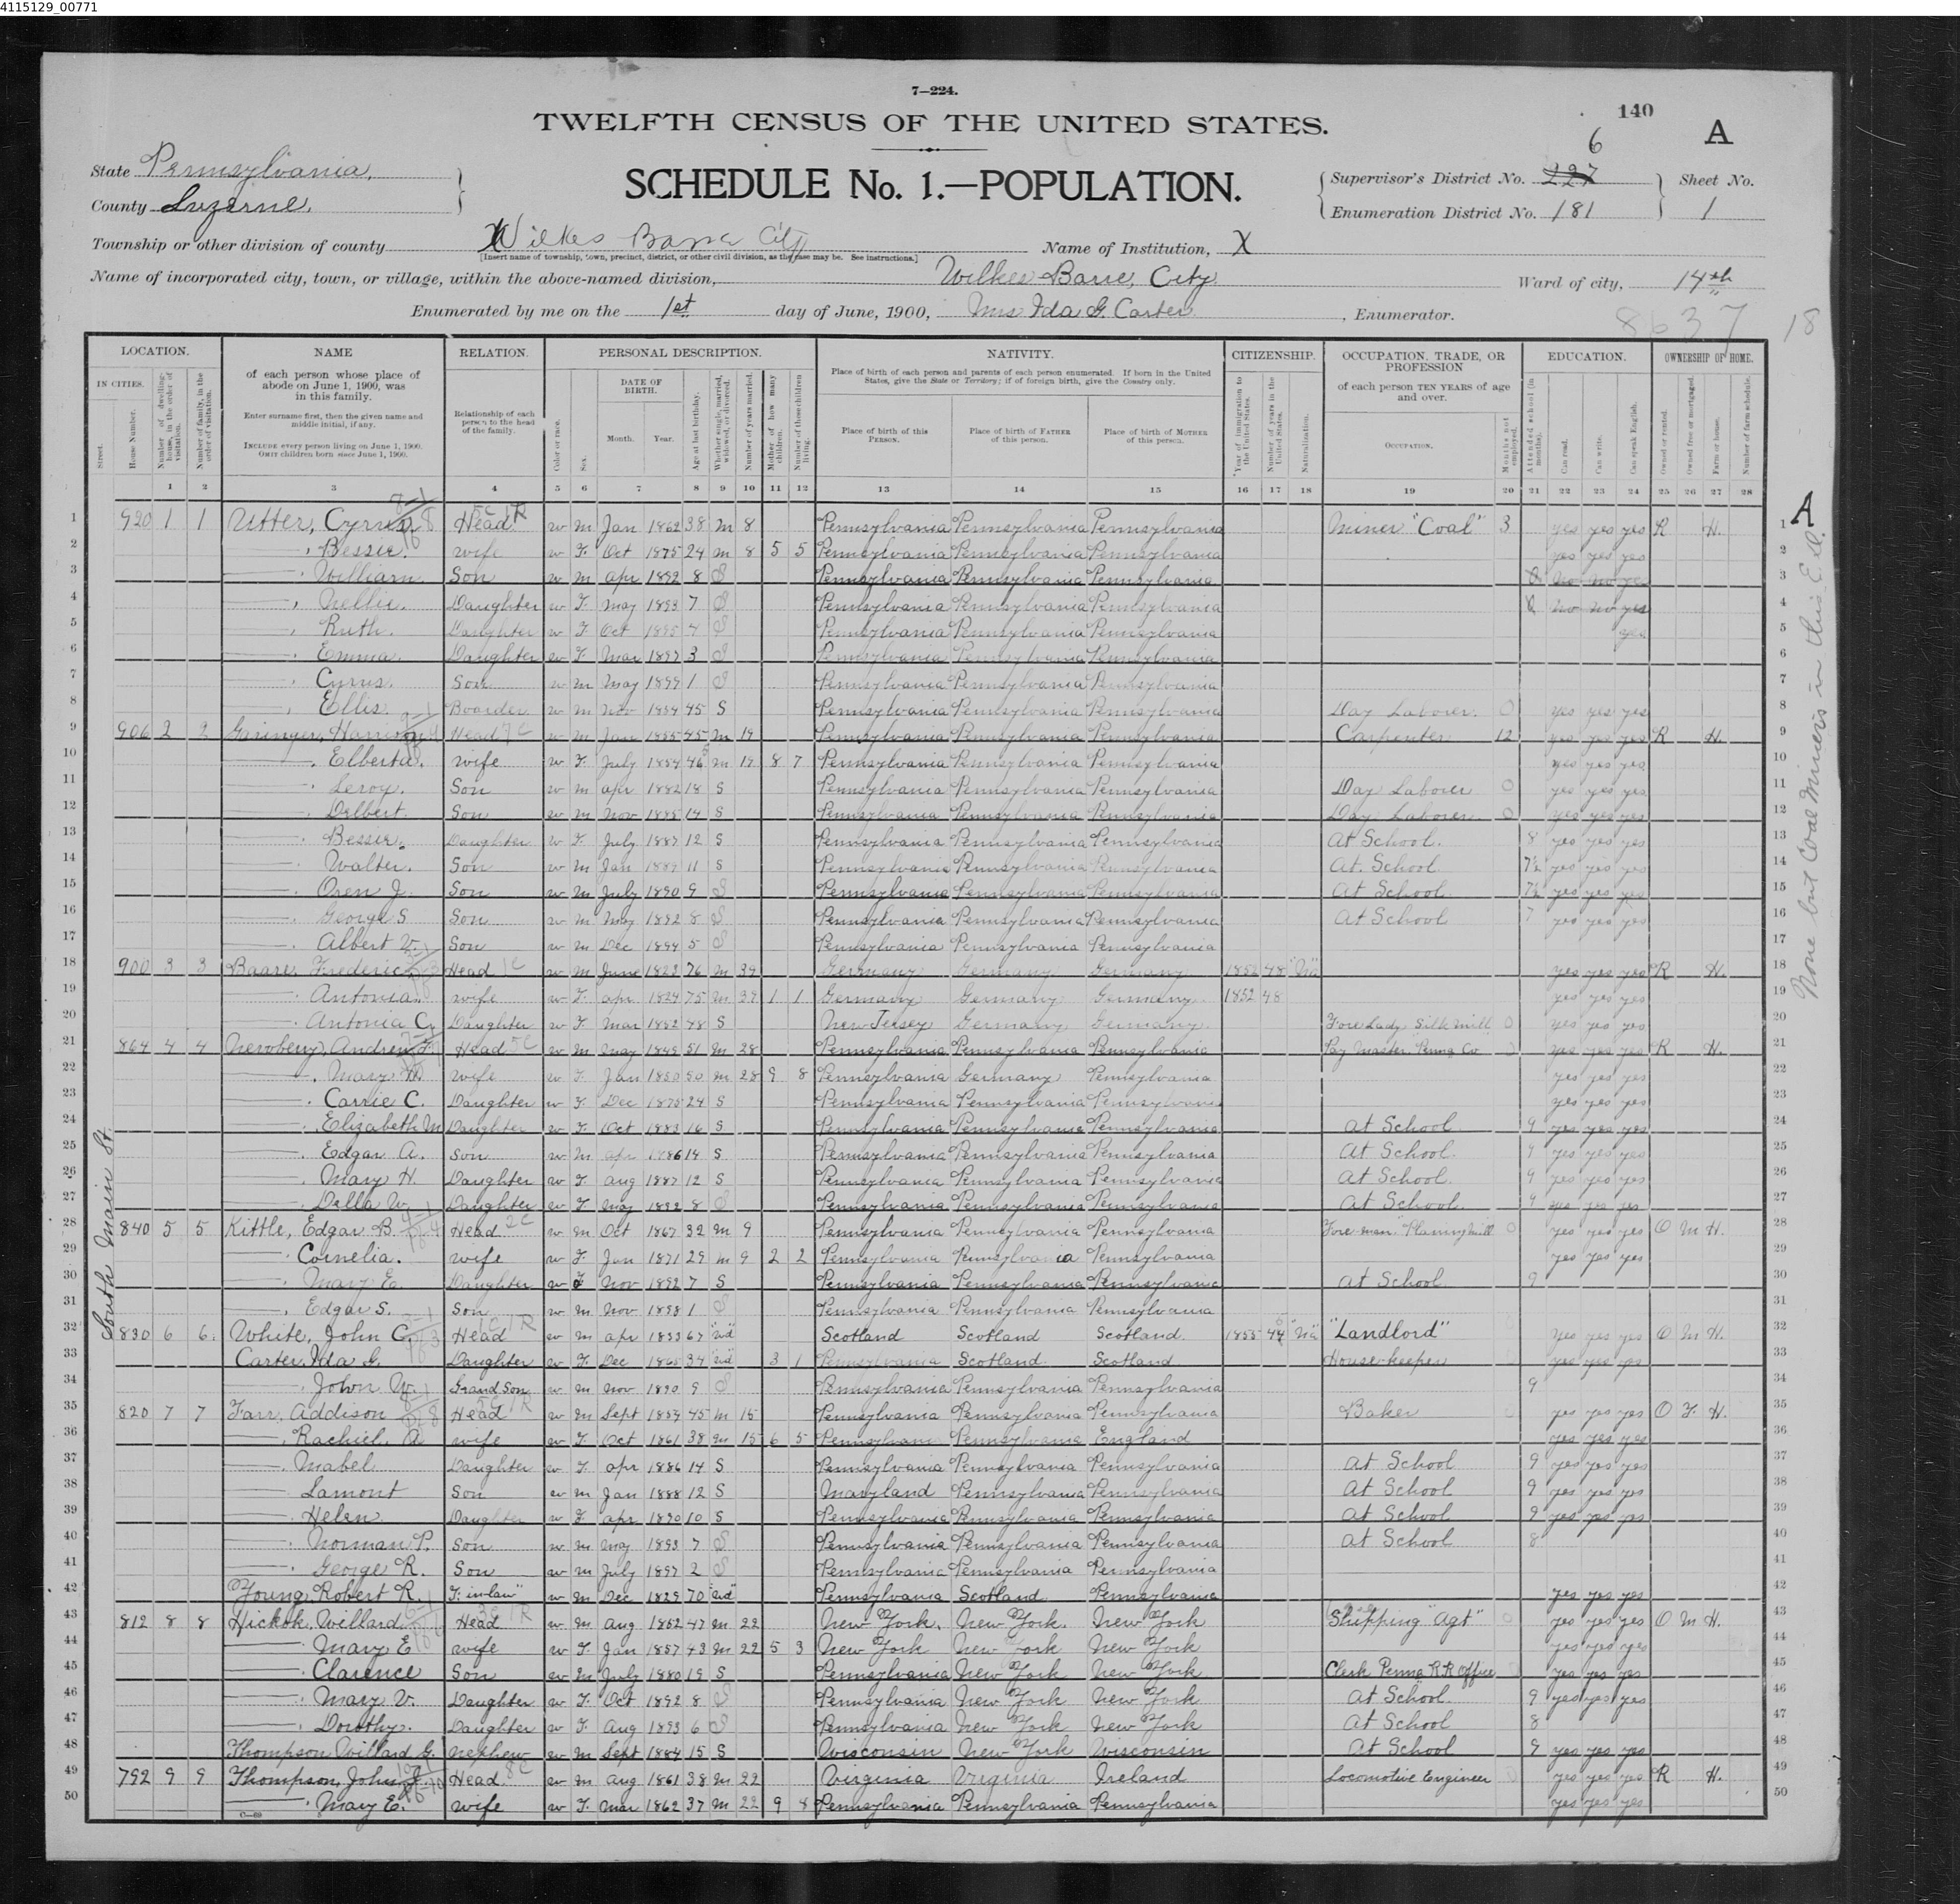 4115129_00771
7—224.
140
TWELFTH CENSUS OF THE UNITED STATES.
6
A
State Pennsylvania,
SCHEDULE No. 1.—POPULATION.
Supervisor's District No. 227
Sheet No.
County Luzerne,
Enumeration District No. 181
1
Township or other division of county Wilkes Barre City
Name of Institution, X
[Insert name of township, town, precinct, district, or other civil division, as the case may be. See instructions.]
Name of incorporated city, town, or village, within the above-named division, Wilkes-Barre, City
Ward of city, 14th
Enumerated by me on the 1st day of June, 1900, Mrs Ida G. Carter, Enumerator.
8637 18
LOCATION. NAME RELATION. PERSONAL DESCRIPTION. NATIVITY. CITIZENSHIP. OCCUPATION, TRADE, OR PROFESSION EDUCATION. OWNERSHIP OF HOME.
IN CITIES.
Street.
House Number.
Number of dwelling-house, in the order of visitation.
Number of family, in the order of visitation.
of each person whose place of abode on June 1, 1900, was in this family.
Enter surname first, then the given name and middle initial, if any.
INCLUDE every person living on June 1, 1900.
OMIT children born since June 1, 1900.
Relationship of each person to the head of the family.
Color or race.
Sex.
DATE OF BIRTH.
Month. Year.
Age at last birthday.
Whether single, married, widowed, or divorced.
Number of years married.
Mother of how many children.
Number of these children living.
Place of birth of each person and parents of each person enumerated. If born in the United States, give the State or Territory; if of foreign birth, give the Country only.
Place of birth of this PERSON.
Place of birth of FATHER of this person.
Place of birth of MOTHER of this person.
Year of immigration to the United States.
Number of years in the United States.
Naturalization.
of each person TEN YEARS of age and over.
OCCUPATION.
Months not employed.
Attended school (in months).
Can read.
Can write.
Can speak English.
Owned or rented.
Owned free or mortgaged.
Farm or house.
Number of farm schedule.
1 2 3 4 5 6 7 8 9 10 11 12 13 14 15 16 17 18 19 20 21 22 23 24 25 26 27 28
South Main St.
1 920 1 1 Utter, Cyrus Head w m Jan 1862 38 m 8 Pennsylvania Pennsylvania Pennsylvania Miner "Coal" 3 yes yes yes R H. 1
2 Bessie. wife w F. Oct 1875 24 m 8 5 5 Pennsylvania Pennsylvania Pennsylvania yes yes yes 2
3 William Son w m apr 1892 8 S Pennsylvania Pennsylvania Pennsylvania 0 no no yes 3
4 Nellie. Daughter w F. may 1893 7 S Pennsylvania Pennsylvania Pennsylvania 0 no no yes 4
5 Ruth. Daughter w F Oct 1895 4 S Pennsylvania Pennsylvania Pennsylvania yes 5
6 Emma. Daughter w F. Mar 1897 3 S Pennsylvania Pennsylvania Pennsylvania 6
7 Cyrus. Son w m May 1899 1 S Pennsylvania Pennsylvania Pennsylvania 7
8 Ellis. Boarder w m Nov 1854 45 S Pennsylvania Pennsylvania Pennsylvania Day Laborer. 0 yes yes yes 8
9 906 2 2 Garinger, Harrison Head w m Jan 1855 45 m 19 Pennsylvania Pennsylvania Pennsylvania Carpenter 12 yes yes yes R H. 9
10 Elberta. wife w F. July 1854 45 m 19 8 7 Pennsylvania Pennsylvania Pennsylvania yes yes yes 10
11 Leroy. Son w m apr 1882 18 S Pennsylvania Pennsylvania Pennsylvania Day Laborer 0 yes yes yes 11
12 Delbert. Son w m Nov 1885 14 S Pennsylvania Pennsylvania Pennsylvania Day Laborer 0 yes yes yes 12
13 Bessie. Daughter w F. July 1887 12 S Pennsylvania Pennsylvania Pennsylvania At School. 8 yes yes yes 13
14 Walter. Son w m Jan 1889 11 S Pennsylvania Pennsylvania Pennsylvania At School 7½ yes yes yes 14
15 Oren J. Son w m July 1890 9 S Pennsylvania Pennsylvania Pennsylvania At School 7½ yes yes yes 15
16 George S Son w m May 1892 8 S Pennsylvania Pennsylvania Pennsylvania At School 7 yes yes yes 16
17 Albert V. Son w m Dec 1894 5 S Pennsylvania Pennsylvania Pennsylvania 17
18 900 3 3 Baare, Frederic Head w m June 1823 76 m 39 Germany Germany Germany 1852 48 "Na" yes yes yes R H. 18
19 Antonia. wife w F. apr 1824 75 m 39 1 1 Germany Germany Germany 1852 48 yes yes yes 19
20 Antonia C. Daughter w F. Mar 1852 48 S New Jersey Germany Germany Fore Lady Silk Mill 0 yes yes yes 20
21 864 4 4 Newberry, Andrew J. Head w m May 1849 51 m 28 Pennsylvania Pennsylvania Pennsylvania Pay Master, Penna Co 0 yes yes yes R H. 21
22 Mary H. wife w F. Jan 1850 50 m 28 9 8 Pennsylvania Germany Pennsylvania yes yes yes 22
23 Carrie C. Daughter w F. Dec 1875 24 S Pennsylvania Pennsylvania Pennsylvania yes yes yes 23
24 Elizabeth M Daughter w F. Oct 1883 16 S Pennsylvania Pennsylvania Pennsylvania at School 9 yes yes yes 24
25 Edgar A. Son w m apr 1886 14 S Pennsylvania Pennsylvania Pennsylvania At School 9 yes yes yes 25
26 Mary H. Daughter w F aug 1887 12 S Pennsylvania Pennsylvania Pennsylvania at School. 9 yes yes yes 26
27 Della W. Daughter w F. May 1892 8 S Pennsylvania Pennsylvania Pennsylvania at School. 9 yes yes yes 27
28 840 5 5 Kittle, Edgar B. Head w m Oct 1867 32 m 9 Pennsylvania Pennsylvania Pennsylvania Fore-man. "Planing Mill 0 yes yes yes O M H. 28
29 Cornelia. wife w F. Jan 1871 29 m 9 2 2 Pennsylvania Pennsylvania Pennsylvania yes yes yes 29
30 Mary E. Daughter w F Nov 1892 7 S Pennsylvania Pennsylvania Pennsylvania at School 9 30
31 Edgar S. Son w m Nov 1898 1 S Pennsylvania Pennsylvania Pennsylvania 31
32 830 6 6 White, John C. Head w m apr 1833 67 "wd" Scotland Scotland Scotland. 1855 44 "Na" "Landlord" yes yes yes O M H. 32
33 Carter, Ida G. Daughter w F. Dec 1865 34 "wd" 3 1 Pennsylvania Scotland Scotland Housekeeper yes yes yes 33
34 John W. Grand Son w m Nov 1890 9 S Pennsylvania Pennsylvania Pennsylvania 9 34
35 820 7 7 Farr, Addison Head w m Sept 1854 45 m 15 Pennsylvania Pennsylvania Pennsylvania Baker 0 yes yes yes O F. H. 35
36 Rachiel. A wife w F. Oct 1861 38 m 15 6 5 Pennsylvani Pennsylvania England yes yes yes 36
37 Mabel Daughter w F. apr 1886 14 S Pennsylvania Pennsylvania Pennsylvania at School 9 yes yes yes 37
38 Lamont Son w m Jan 1888 12 S Maryland Pennsylvania Pennsylvania at School 9 yes yes yes 38
39 Helen Daughter w F. apr 1890 10 S Pennsylvania Pennsylvania Pennsylvania at School 9 yes yes yes 39
40 Norman P. Son w m May 1893 7 S Pennsylvania Pennsylvania Pennsylvania at School 8 40
41 George R. Son w m July 1897 2 S Pennsylvania Pennsylvania Pennsylvania 41
42 Young, Robert R. F. in-law" w m Dec 1829 70 "wd" Pennsylvania Scotland Pennsylvania yes yes yes 42
43 812 8 8 Hickok, Willard Head w m Aug 1852 47 m 22 New York. New York. New York Shipping "Agt" 0 yes yes yes O M H. 43
44 Mary E wife w F. Jan 1857 43 m 22 5 3 New York New York New York yes yes yes 44
45 Clarence Son w m July 1880 19 S Pennsylvania New York New York Clerk Penna R R Office yes yes yes 45
46 Mary V. Daughter w F. Oct 1892 8 S Pennsylvania New York New York at School. 9 yes yes yes 46
47 Dorothy. Daughter w F. Aug 1893 6 S Pennsylvania New York New York at School 8 47
48 Thompson Willard G. nephew w m Sept 1884 15 S Wisconsin New York Wisconsin at School 9 yes yes yes 48
49 792 9 9 Thompson, John J. Head w m aug 1861 38 m 22 Virginia Virginia Ireland Locomotive Engineer yes yes yes R H. 49
50 Mary E. wife w F. Mar 1862 37 m 22 9 8 Pennsylvania Pennsylvania Pennsylvania yes yes yes 50
C—69
A
None but Coal Miners in this E.D.